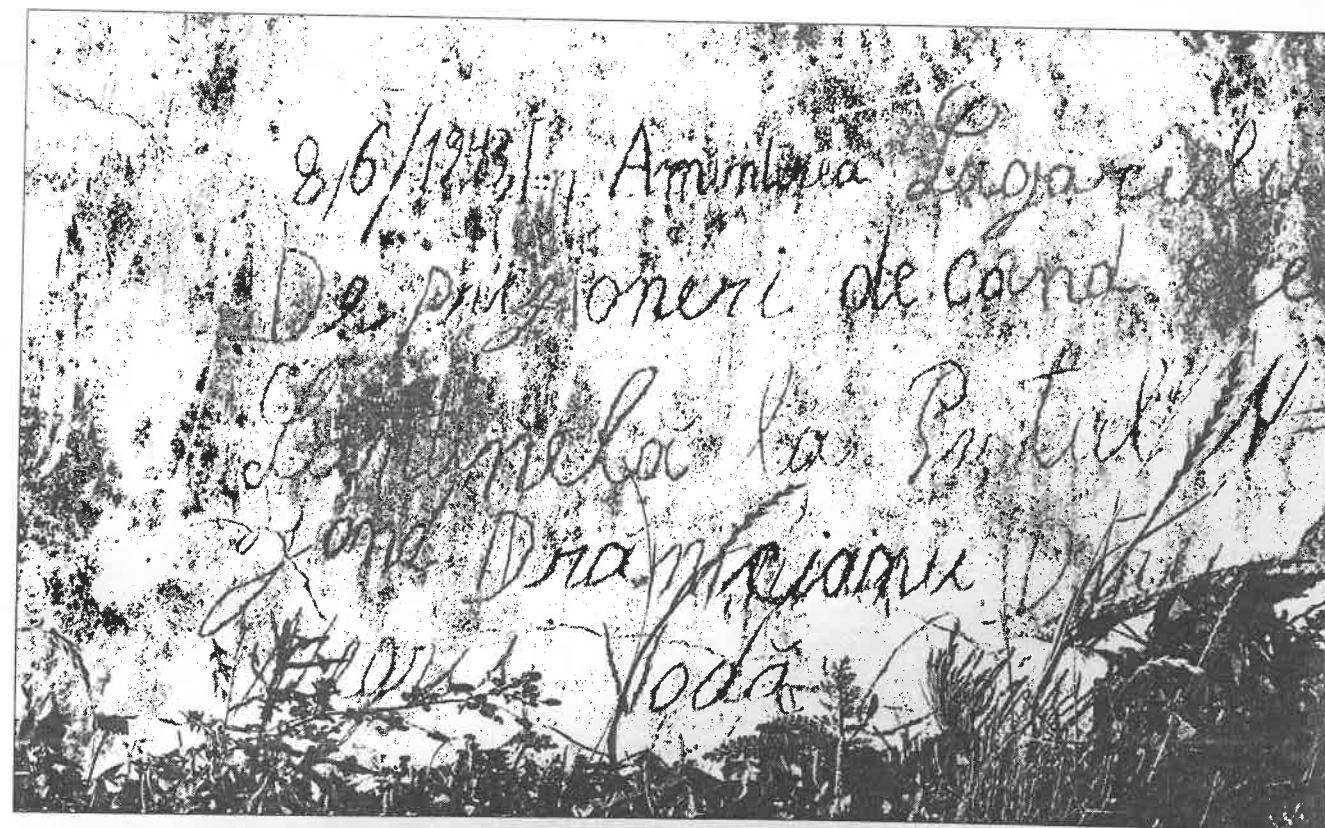 8/6/1943 Amimtirea Lagarului
De prizoneri de cand
Santinelă la Putul N
Ion Dramceianu Din
Vodă